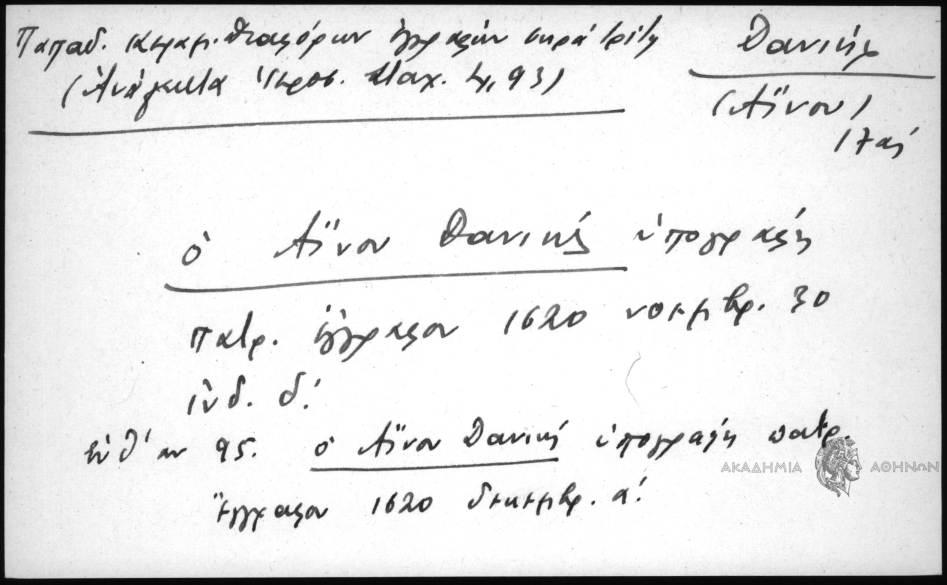 Παπαδ. Κεραμ. Διαφόρων ἐγγράφων σειρὰ τρίτη
(Ἀνάλεκτα Ἱεροσ. Σταχ. 4, 93)
Δανιήλ
(Αἴνου)
17ος
ὁ Αἴνου Δανιήλ ὑπογράφει
πατρ. ἔγγραφον 1620 νοεμβρ. 30
ἰνδ. δ΄.
ἔνθ' αν 95. ὁ Αἴνου Δανιήλ ὑπογράφει πατρ.
ἔγγραφον 1620 δεκεμβρ. α΄.
ΑΚΑΔΗΜΙΑ ΑΘΗΝΩΝ